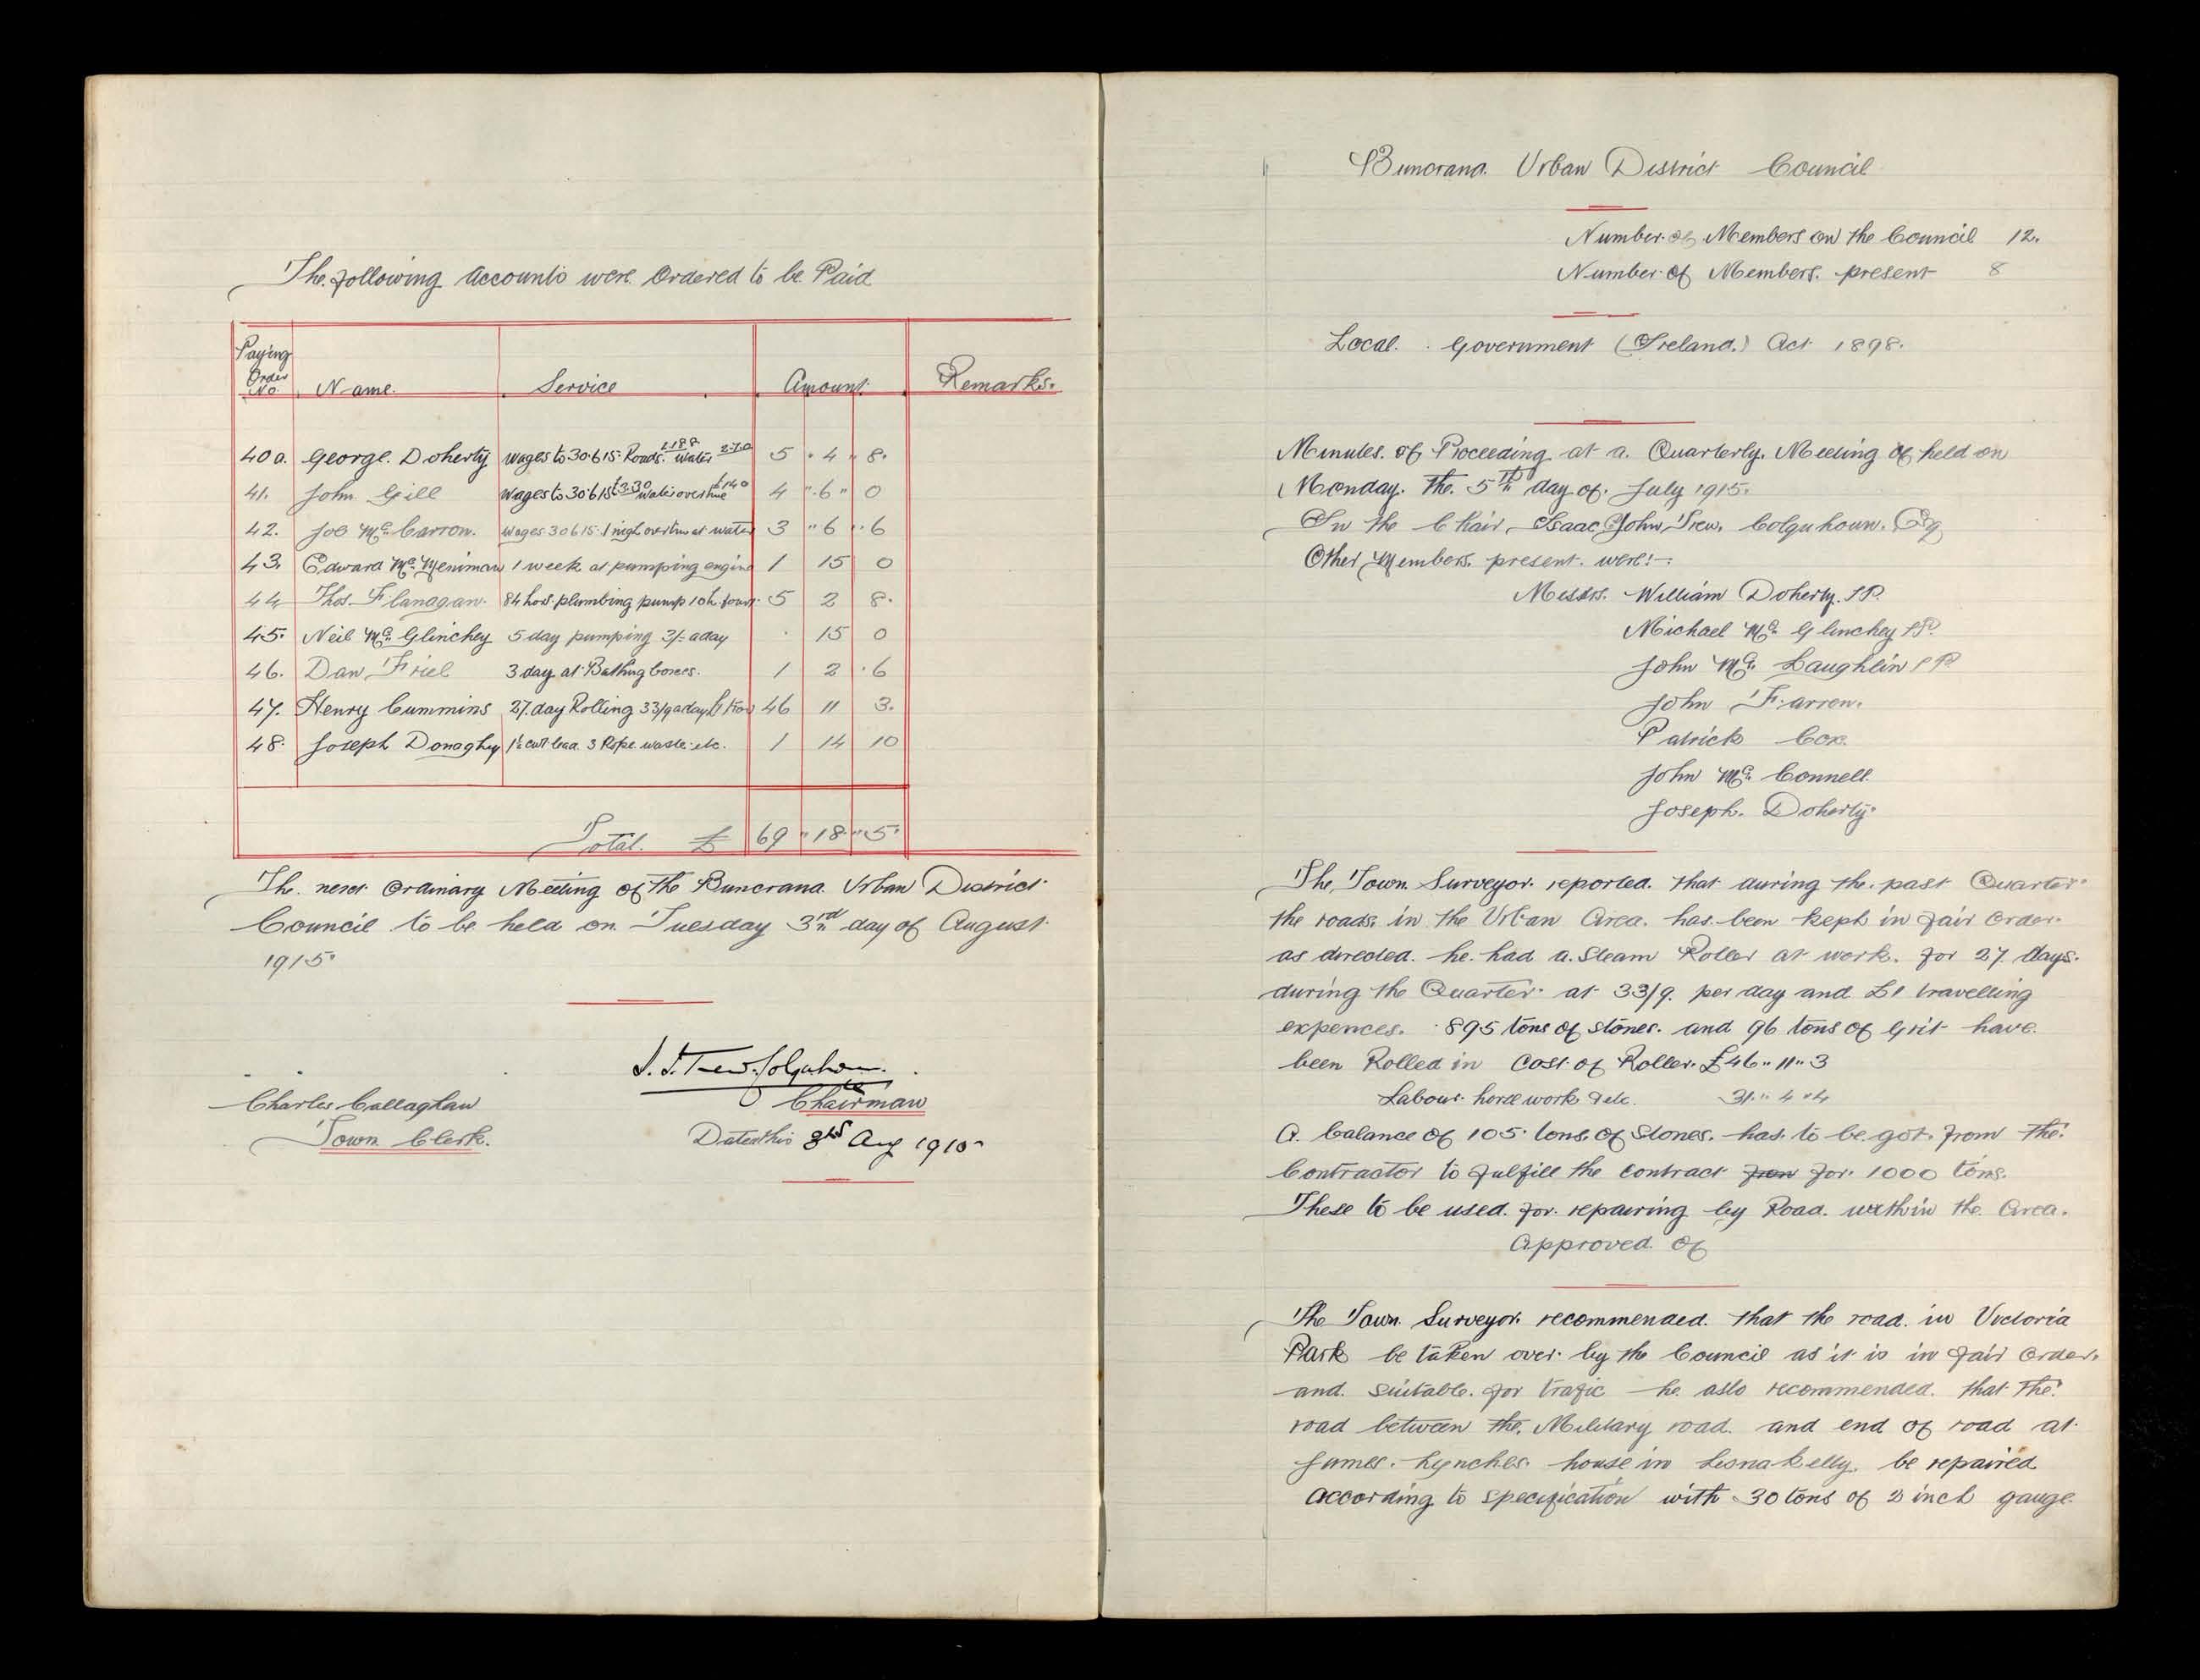 The following Accounts were Ordered to be Paid
Paying Order No. Name. Service Amount. Remarks.
40a. George. Doherty wages to 30.6.15. Roads. water 2.7.0 5 " 4 " 8.
41. John Gill wages to 30.6.15 £3.3.0 water overtime 4 " 6 " 0
42. Joe McCarron. wages 30.6.15. 1 nigh overtim at water 3 " 6 " 6
43. Edward McMeniman 1 week at pumping engine 1 15 0
44 Thos. Flanagan. 84 hors. plumbing pump 10 h. 5 2 8.
45. Neil McGlinchey 5 day pumping 3/- a day 15 0
46. Dan Friel 3 day at Bathing boxes. 1 2 6
47. Henry Cummins 27. day Rolling 33/9 a day £1 46 11 3.
48. Joseph Donaghey 1½ cwt lead 3 Rope waste etc. 1 14 10
Total. £ 69 " 18 " 5.
The next Ordinary Meeting of the Buncrana Urban District
Council to be held on Tuesday 3rd day of August
1915.
I. J. Trew. Colquhoun.
Chairman
Charles Callaghan
Town Clerk.
Date this 3rd Aug 1915
Buncrana. Urban District Council
Number of Members on the Council 12.
Number of Members. present 8
Local. Government (Ireland.) Act 1898.
Minutes. of Proceeding at a. Quarterly. Meeting of held on
Monday. the. 5th day of. July 1915.
In the Chair, Isaac John Trew. Colquhoun. Esq
Other Members. present. were:-
Messrs. William Doherty. J.P.
Michael McGlinchey J.P.
John McLaughlin J.P.
John Farren.
Patrick Cox.
John McConnell.
Joseph. Doherty.
The Town. Surveyor. reported. that during the. past Quarter
the roads. in the Urban Area. has. been kept in fair order.
as directed. he. had a. Steam Roller at work. for 27 days.
during the Quarter. at 33/9. per day and £1 travelling
expences. 895 tons of stones. and 96 tons of Grit have.
been Rolled in Cost of Roller. £46 " 11 " 3
Labour horse work. &etc. 31 " 4 " 4
A. balance of 105. tons. of Stones. has. to be got. from the.
Contractor to fulfill the contract from for. 1000 tons.
These to be used. for. repairing by Road. within the Area.
Approved of
The Town Surveyor. recommended. that the road. in Victoria
Park be taken over by the Council as it is in fair order.
and. suitable. for trafic he. aslo recommended. that the.
road between the. Military road. and end of road at
James. Lynches. house in Lisnakelly. be repaired
according to specification with 30 tons of 2 inch gauge.